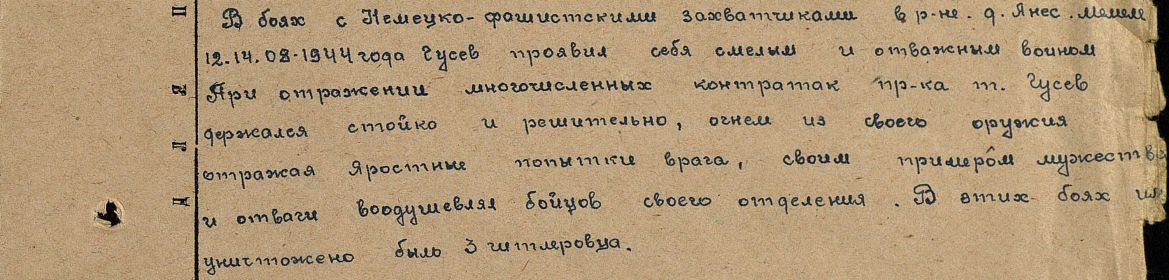 В боях с Немецко-фашистскими захватчиками в р-не. д. Янес. Мемеле
12.14.08.1944 года Гусев проявил себя смелым и отважным воином
При отражении многочисленных контратак пр-ка т. Гусев
держался стойко и решительно, огнем из своего оружия
отражая яростные попытки врага, своим примером мужеств
и отваги воодушевлял бойцов своего отделения. В этих боях им
уничтожено быль 3 гитлеровца.